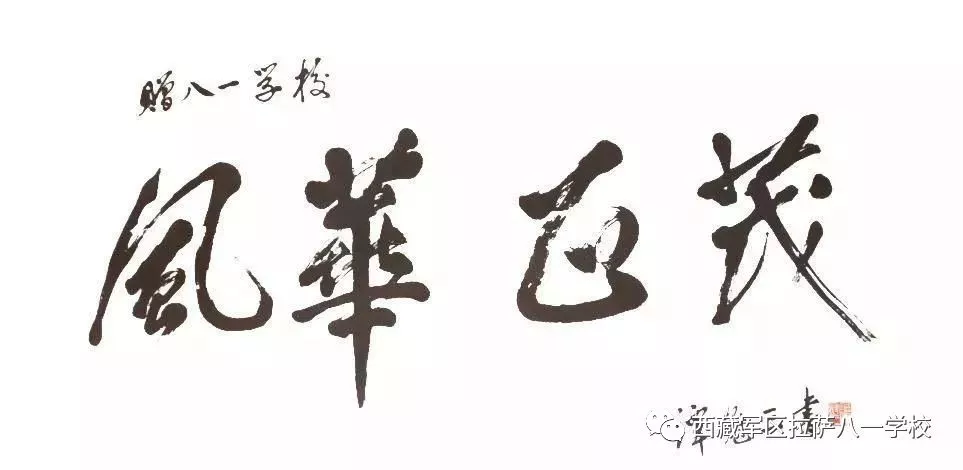 赠八一学校
風華正茂
西藏军区拉萨八一学校